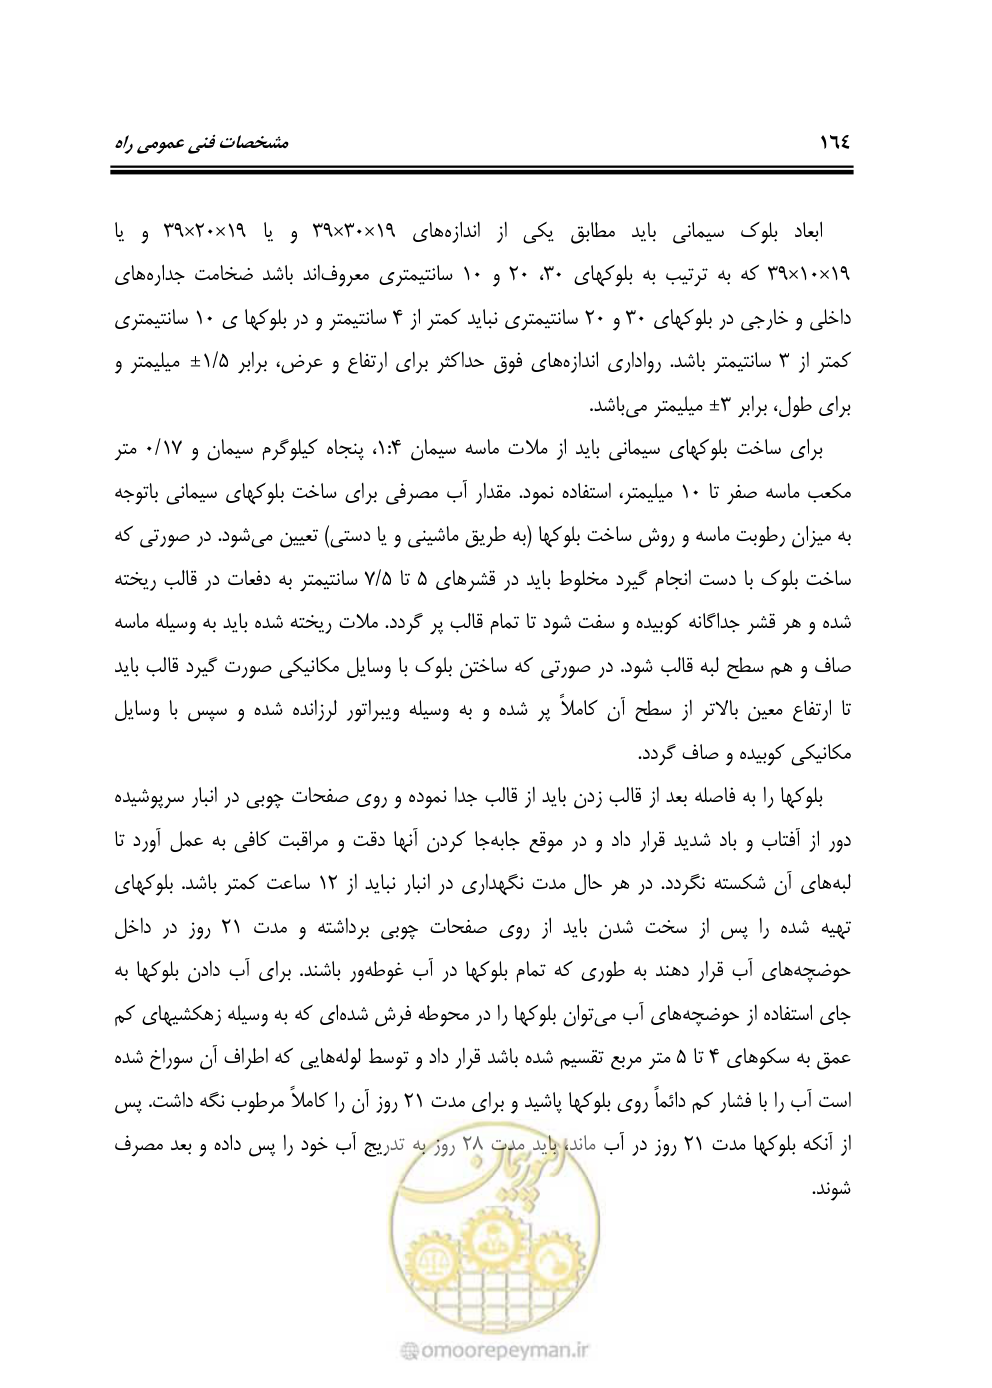 ۱٦٤ مشخصات فنی عمومی راه
ابعاد بلوک سیمانی باید مطابق یکی از اندازه‌های ۱۹×۳۰×۳۹ و یا ۱۹×۲۰×۳۹ و یا
۱۹×۱۰×۳۹ که به ترتیب به بلوکهای ۳۰، ۲۰ و ۱۰ سانتیمتری معروف‌اند باشد ضخامت جداره‌های
داخلی و خارجی در بلوکهای ۳۰ و ۲۰ سانتیمتری نباید کمتر از ۴ سانتیمتر و در بلوکها ی ۱۰ سانتیمتری
کمتر از ۳ سانتیمتر باشد. رواداری اندازه‌های فوق حداکثر برای ارتفاع و عرض، برابر ۱/۵± میلیمتر و
برای طول، برابر ۳± میلیمتر می‌باشد.
برای ساخت بلوکهای سیمانی باید از ملات ماسه سیمان ۱:۴، پنجاه کیلوگرم سیمان و ۰/۱۷ متر
مکعب ماسه صفر تا ۱۰ میلیمتر، استفاده نمود. مقدار آب مصرفی برای ساخت بلوکهای سیمانی باتوجه
به میزان رطوبت ماسه و روش ساخت بلوکها (به طریق ماشینی و یا دستی) تعیین می‌شود. در صورتی که
ساخت بلوک با دست انجام گیرد مخلوط باید در قشرهای ۵ تا ۷/۵ سانتیمتر به دفعات در قالب ریخته
شده و هر قشر جداگانه کوبیده و سفت شود تا تمام قالب پر گردد. ملات ریخته شده باید به وسیله ماسه
صاف و هم سطح لبه قالب شود. در صورتی که ساختن بلوک با وسایل مکانیکی صورت گیرد قالب باید
تا ارتفاع معین بالاتر از سطح آن کاملاً پر شده و به وسیله ویبراتور لرزانده شده و سپس با وسایل
مکانیکی کوبیده و صاف گردد.
بلوکها را به فاصله بعد از قالب زدن باید از قالب جدا نموده و روی صفحات چوبی در انبار سرپوشیده
دور از آفتاب و باد شدید قرار داد و در موقع جابه‌جا کردن آنها دقت و مراقبت کافی به عمل آورد تا
لبه‌های آن شکسته نگردد. در هر حال مدت نگهداری در انبار نباید از ۱۲ ساعت کمتر باشد. بلوکهای
تهیه شده را پس از سخت شدن باید از روی صفحات چوبی برداشته و مدت ۲۱ روز در داخل
حوضچه‌های آب قرار دهند به طوری که تمام بلوکها در آب غوطه‌ور باشند. برای آب دادن بلوکها به
جای استفاده از حوضچه‌های آب می‌توان بلوکها را در محوطه فرش شده‌ای که به وسیله زهکشیهای کم
عمق به سکوهای ۴ تا ۵ متر مربع تقسیم شده باشد قرار داد و توسط لوله‌هایی که اطراف آن سوراخ شده
است آب را با فشار کم دائماً روی بلوکها پاشید و برای مدت ۲۱ روز آن را کاملاً مرطوب نگه داشت. پس
از آنکه بلوکها مدت ۲۱ روز در آب ماند، باید مدت ۲۸ روز به تدریج آب خود را پس داده و بعد مصرف
شوند.
امور پیمان
omoorepeyman.ir